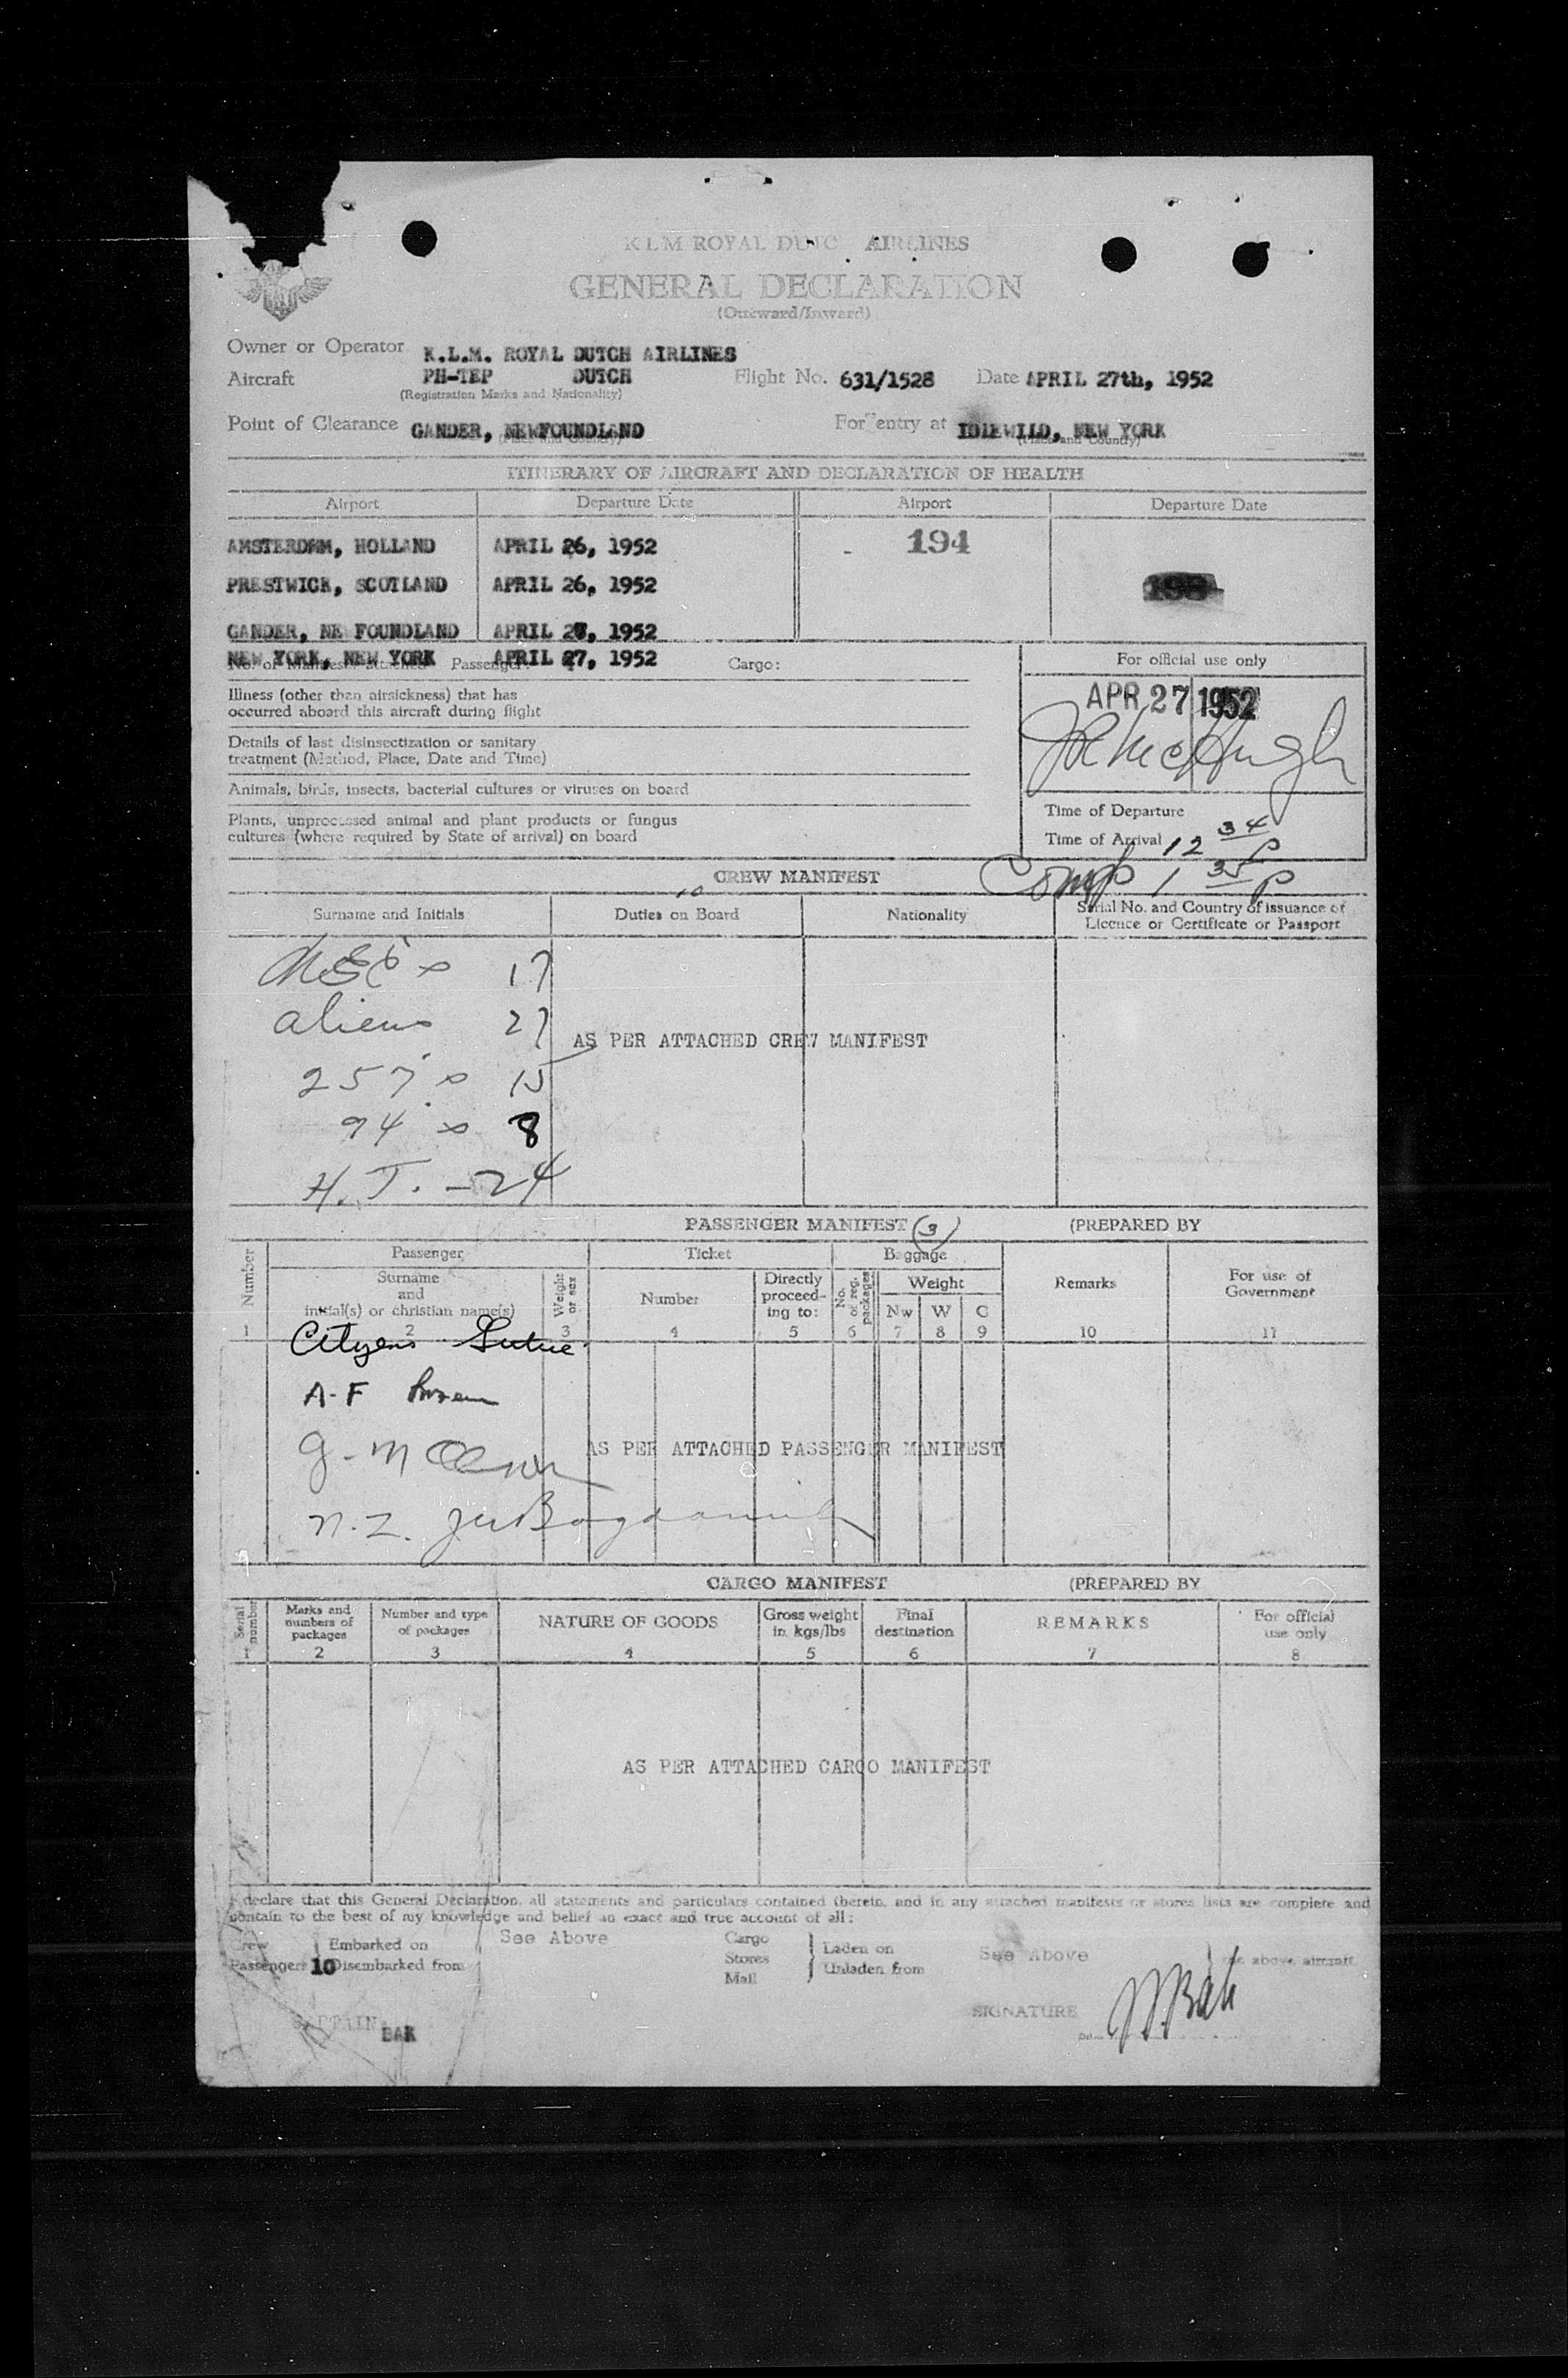 KLM ROYAL DUTC AIRLINES
GENERAL DECLARATION
(Outward/Inward)
Owner or Operator K.L.M. ROYAL DUTCH AIRLINES
Aircraft PH-TEP DUTCH Flight No. 631/1528 Date APRIL 27th, 1952
(Registration Marks and Nationality)
Point of Clearance GANDER, NEWFOUNDLAND For entry at IDLEWILD, NEW YORK
(Place and Country) (Place and Country)
ITINERARY OF AIRCRAFT AND DECLARATION OF HEALTH
Airport Departure Date Airport Departure Date
AMSTERDAM, HOLLAND APRIL 26, 1952 194
PRESTWICK, SCOTLAND APRIL 26, 1952 198
GANDER, NE FOUNDLAND APRIL 27, 1952
NEW YORK, NEW YORK APRIL 27, 1952
No. of Manifests attached Passenger: Cargo:
For official use only
APR 27 1952
Illness (other than airsickness) that has
occurred aboard this aircraft during flight
Details of last disinsectization or sanitary
treatment (Method, Place, Date and Time)
Animals, birds, insects, bacterial cultures or viruses on board
Plants, unprocessed animal and plant products or fungus
cultures (where required by State of arrival) on board
Time of Departure
Time of Arrival 12 34 P
Comp 1 35 P
CREW MANIFEST
10
Surname and Initials Duties on Board Nationality Serial No. and Country of issuance of
Licence or Certificate or Passport
17
aliens 27
AS PER ATTACHED CREW MANIFEST
257's 15
94's 8
H.T. - 24
PASSENGER MANIFEST (3) (PREPARED BY
Number Passenger Ticket Baggage Remarks For use of
Government
Surname
and
initial(s) or christian name(s)
Weight or sex Number Directly
proceed-
ing to:
No. of reg. packages Weight
Nw W C
1 2 3 4 5 6 7 8 9 10 11
Citizens
A-F
G-M
AS PER ATTACHED PASSENGER MANIFEST
N.Z.
CARGO MANIFEST (PREPARED BY
Serial number Marks and
numbers of
packages
Number and type
of packages
NATURE OF GOODS Gross weight
in kgs/lbs
Final
destination
REMARKS For official
use only
1 2 3 4 5 6 7 8
AS PER ATTACHED CARGO MANIFEST
I declare that this General Declaration, all statements and particulars contained therein, and in any attached manifests or stores lists are complete and
contain to the best of my knowledge and belief an exact and true account of all:
Crew Embarked on See Above Cargo Laden on See Above
Passengers 10 Disembarked from Stores Unladen from the above aircraft
Mail
CAPTAIN BAK
SIGNATURE